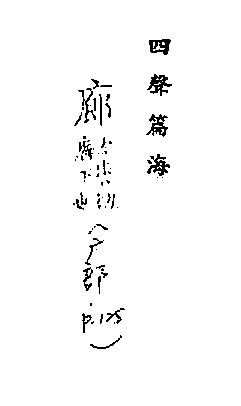 四聲篇海
廊
廡下也
(广部
p.125)